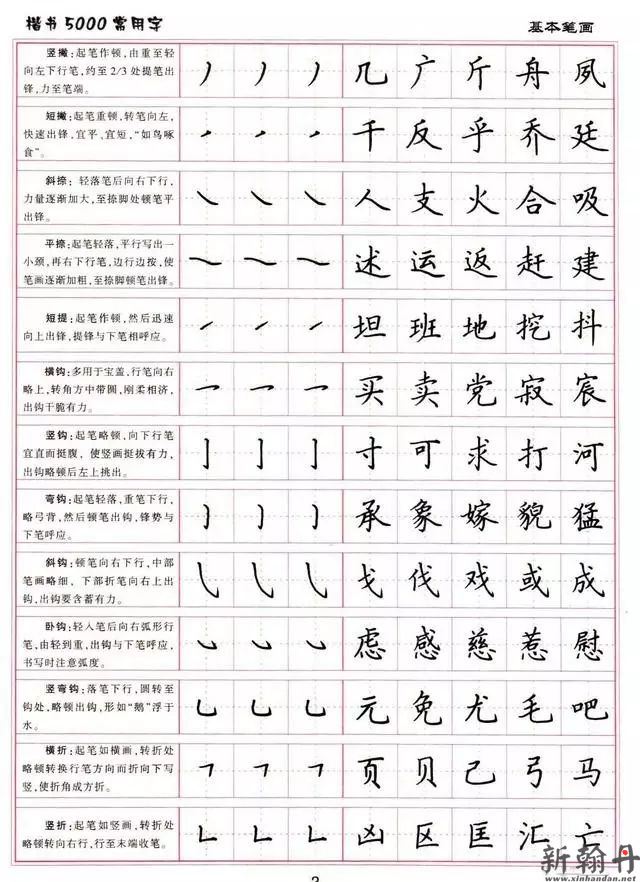 楷书5000常用字
基本笔画
竖撇：起笔作顿，由重至轻
向左下行笔，约至2/3处提笔出
锋，力至笔端。
几 广 斤 舟 夙
短撇：起笔重顿，转笔向左，
快速出锋，宜平、宜短，“如鸟啄
食”。
千 反 乎 乔 廷
斜捺：轻落笔后向右下行，
力量逐渐加大，至捺脚处顿笔平
出锋。
人 支 火 合 吸
平捺：起笔轻落，平行写出一
小颈，再右下行笔，边行边按，使
笔画逐渐加粗，至捺脚顿笔出锋。
述 运 返 赶 建
短提：起笔作顿，然后迅速
向上出锋，提锋与下笔相呼应。
坦 班 地 挖 抖
横钩：多用于宝盖，行笔向右
略上，转角方中带圆，刚柔相济，
出钩干脆有力。
买 卖 党 寂 宸
竖钩：起笔略顿，向下行笔
宜直而挺腹，使竖画挺拔有力，
出钩略顿后左上挑出。
寸 可 求 打 河
弯钩：起笔轻落，重笔下行，
略弓背，然后顿笔出钩，锋势与
下笔呼应。
承 象 嫁 貌 猛
斜钩：顿笔向右下行，中部
笔画略细，下部折笔向右上出
钩，出钩要含蓄有力。
戈 伐 戏 或 成
卧钩：轻入笔后向右弧形行
笔，由轻到重，出钩与下笔呼应，
书写时注意弧度。
虑 感 慈 惹 慰
竖弯钩：落笔下行，圆转至
钩处，略顿出钩，形如“鹅”浮于
水。
元 免 尤 毛 吧
横折：起笔如横画，转折处
略顿转换行笔方向而折向下写
竖，使折角成方折。
页 贝 己 弓 马
竖折：起笔如竖画，转折处
略顿转向右行，行至末端收笔。
凶 区 匡 汇 亡
新翰丹
www.xinhandan.net